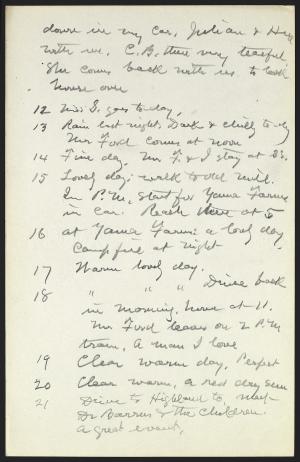 down in my car, Julian & Hud
with us. C.B. there very tearful,
She comes back with us to look
house over
12 Miss S. goes to-day,
13 Rain last night, Dark & chilly to-day
Mr Ford comes at noon
14 Fine day. Mr F. & I stay at S's.
15 Lovely day; walk to old mill.
In P.M. start for Yama Farms
in car. Reach there at 5
16 at Yama Farms: a lovely day
Camp fire at night
17 Warm lovely day.
18 " " " Drive back
in morning, home at 11.
Mr Ford leaves on 2 P.M
train. A man I love
19 Clear warm day, Perfect
20 Clear warm, a red day sun
21 Drive to Highland to meet
Dr Barrus & the children.
A great event,